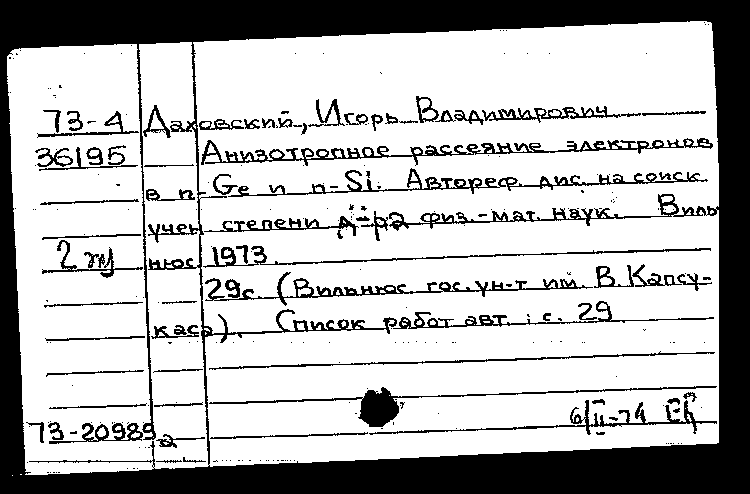 73-4 Даховский, Игорь Владимирович
36195 Анизотропное рассеяние электронов
в n-Ge и n-Si. Автореф. дис. на соиск.
учен. степени д-ра физ.-мат. наук. Виль
2 нюс 1973.
29с. (Вильнюс. гос. ун-т им. В. Капсу-
каса). Список работ авт.: с. 29
6/II-74
73-20989